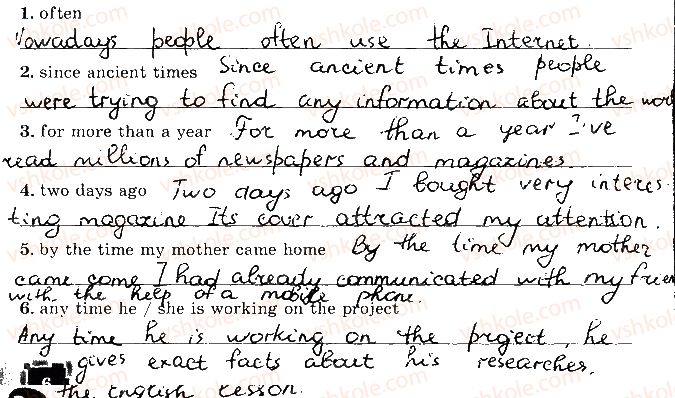 1. often
Nowadays people often use the Internet.
2. since ancient times Since ancient times people
were trying to find any information about the wor
3. for more than a year For more than a year I've
read millions of newspapers and magazines
4. two days ago Two days ago I bought very interes-
ting magazine Its cover attracted my attention.
5. by the time my mother came home By the time my mother
came come I had already communicated with my frien
with the help of a mobile phone.
6. any time he / she is working on the project
Any time he is working on the project, he
gives exact facts about his researches.
6
the English lesson.